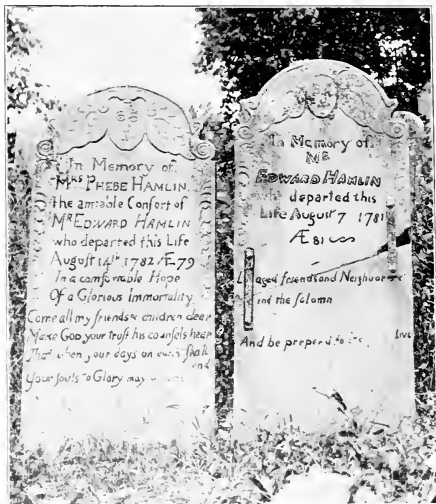 In Memory of
Mrs PHEBE HAMLIN
the amiable Confort of
Mr EDWARD HAMLIN
who departed this Life
August 14th 1782 Æ 79
In a comfortable Hope
Of a Glorious Immortality
Come all my friends & children dear
Make GOD your Trust his counsels hear
That when your days on earth shall
end
Your fouls to Glory may
In Memory of
MR
EDWARD HAMLIN
who departed this
Life August 7 1781
Æ 81
aged friends and Neighbour
and the solomn
Live
And be prepered to